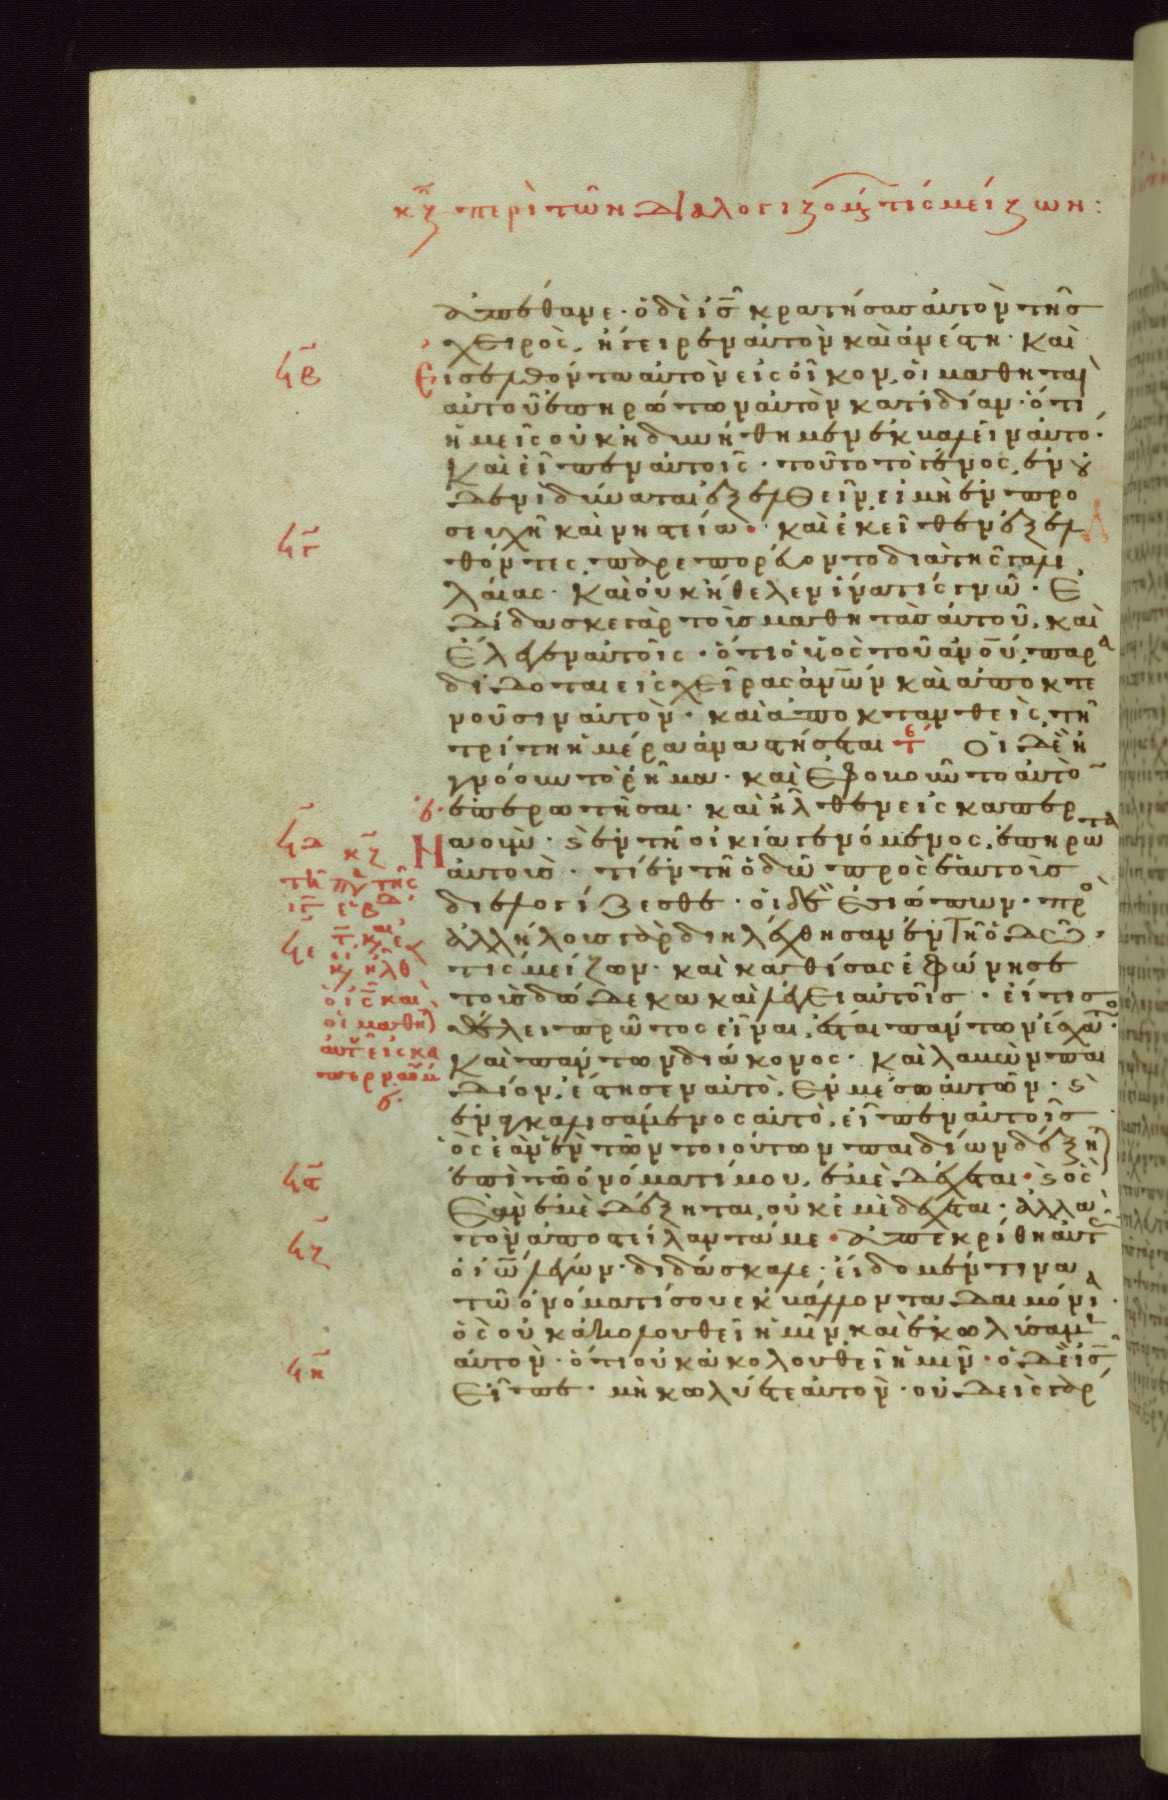 κζ περὶ τῶν διαλογιζομ τίς μείζων:
ἀπέθανε· ὁ δὲ ἰς κρατήσας αὐτὸν τῆς
χειρὸς, ἤγειρεν αὐτὸν καὶ ἀνέστη· καὶ
ϟβ εἰσελθόντα αὐτὸν εἰς οἶκον, οἱ μαθηταὶ
αὐτοῦ ἐπηρώτων αὐτὸν κατιδίαν· ὅτι
ἡμεῖς οὐκ ἠδυνήθημεν ἐκβαλεῖν αὐτό·
καὶ εἶπεν αὐτοῖς· τοῦτο τὸ γένος, ἐν οὐ
δενὶ δύναται ἐξελθεῖν, εἰ μὴ ἐν προ
ϟγ σευχῆ καὶ νηστεία· καὶ ἐκεῖθεν ἐξελ
θόντες, παρεπορεύοντο διὰ τῆς γαλι
λαίας· καὶ οὐκ ἤθελεν ἵνα τίς γνῶ· ἐ
δίδασκε γὰρ τοὺς μαθητὰς αὐτοῦ, καὶ
ἔλεγεν αὐτοῖς· ὅτι ὁ υἱὸς τοῦ ανου, παρα
δίδοται εἰς χεῖρας ανων καὶ ἀποκτε
νοῦσιν αὐτὸν· καὶ ἀποκτανθεὶς, τῆ
τρίτη ἡμέρα ἀναστήσεται τε οἱ δὲ ἠ
γνόουν τὸ ρῆμα· καὶ ἐφοβοῦντο αὐτὸ
ἐπερωτῆσαι· καὶ ἦλθεν εἰς καπερ
ϟδ κζ ναούμ· καὶ ἐν τῆ οἰκία γενόμενος, ἐπηρώτα
αὐτοὺς· τί ἐν τῆ ὁδῶ πρὸς ἑαυτοὺς
διελογίζεσθε· οἱ δὲ ἐσιώπων· πρὸ
ϟε ἀλλήλους γὰρ διηλέχθησαν ἐν τῆ ὁδῶ,
τίς μείζων· καὶ καθίσας ἐφώνησε
ὁ ις καὶ τοὺς δώδεκα καὶ λέγει αὐτοῖς· εἴ τις
οἱ μαθη θέλει πρῶτος εἶναι, ἔσται πάντων ἔσχατο
αὐτ εἰς κα καὶ πάντων διάκονος· καὶ λαβὼν παι
περναοὺμ δίον, ἔστησεν αὐτὸ, ἐν μέσω αὐτῶν· καὶ
ἐναγκαλισάμενος αὐτὸ, εἶπεν αὐτοῖς
ὃς ἐὰν ἓν τῶν τοιούτων παιδίων δέξη
ϟϛ ἐπὶ τῶ ὀνόματί μου, ἐμὲ δέχεται· καὶ ὃς
ἐὰν ἐμὲ δέξηται, οὐκ ἐμὲ δέχεται· ἀλλὰ
ϟζ τὸν ἀποστείλαντά με· ἀπεκρίθη αὐτ
ὁ ιω λέγων· διδάσκαλε· εἴδομέν τινα
τῶ ὀνόματί σου ἐκβάλλοντα δαιμόνια·
ὃς οὐκ ἀκολουθεῖ ἡμῖν, καὶ ἐκωλύσαμ
ϟη αὐτὸν· ὅτι οὐκ ἀκολουθεῖ ἡμῖν· ὁ δὲ ις
εἶπε· μὴ κωλύετε αὐτὸν· οὐδεὶς γὰρ